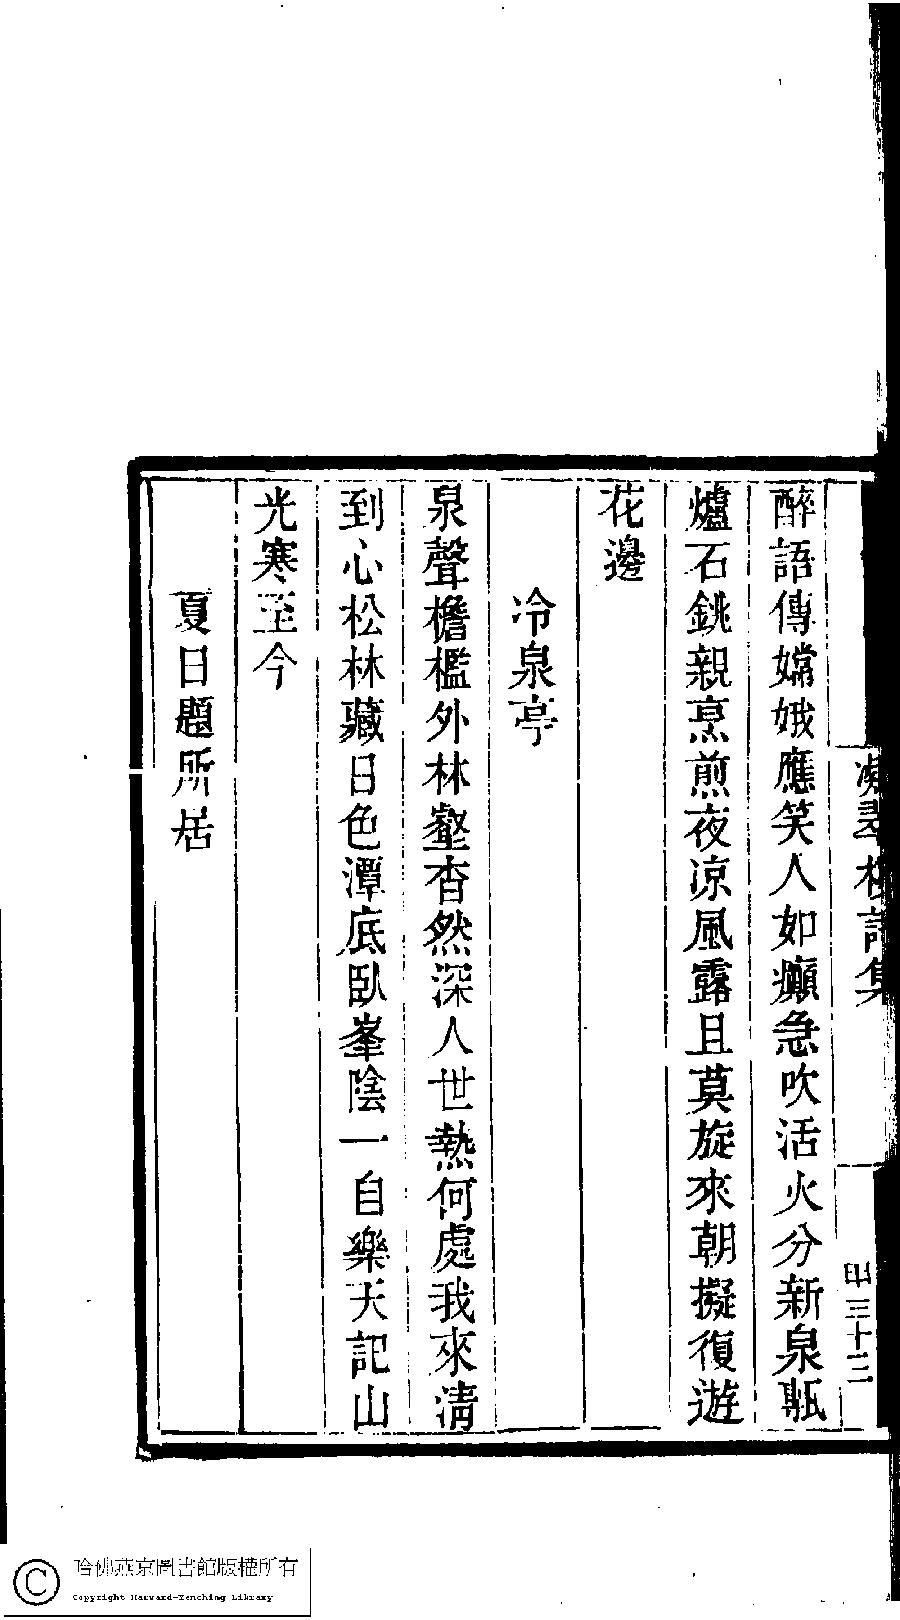 醉語傳嫦娥應笑人如癲急吹活火分新泉甎
爐石銚親烹煎夜涼風露且莫旋來朝擬復遊
花邊
冷泉亭
泉聲檐檻外林壑杳然深人世熱何處我來清
到心松林藏日色潭底臥峯陰一自樂天記山
光寒至今
夏日題所居
凝翠樓詩集
三十三
哈佛燕京圖書館版權所有
Copyright Harvard-Yenching Library